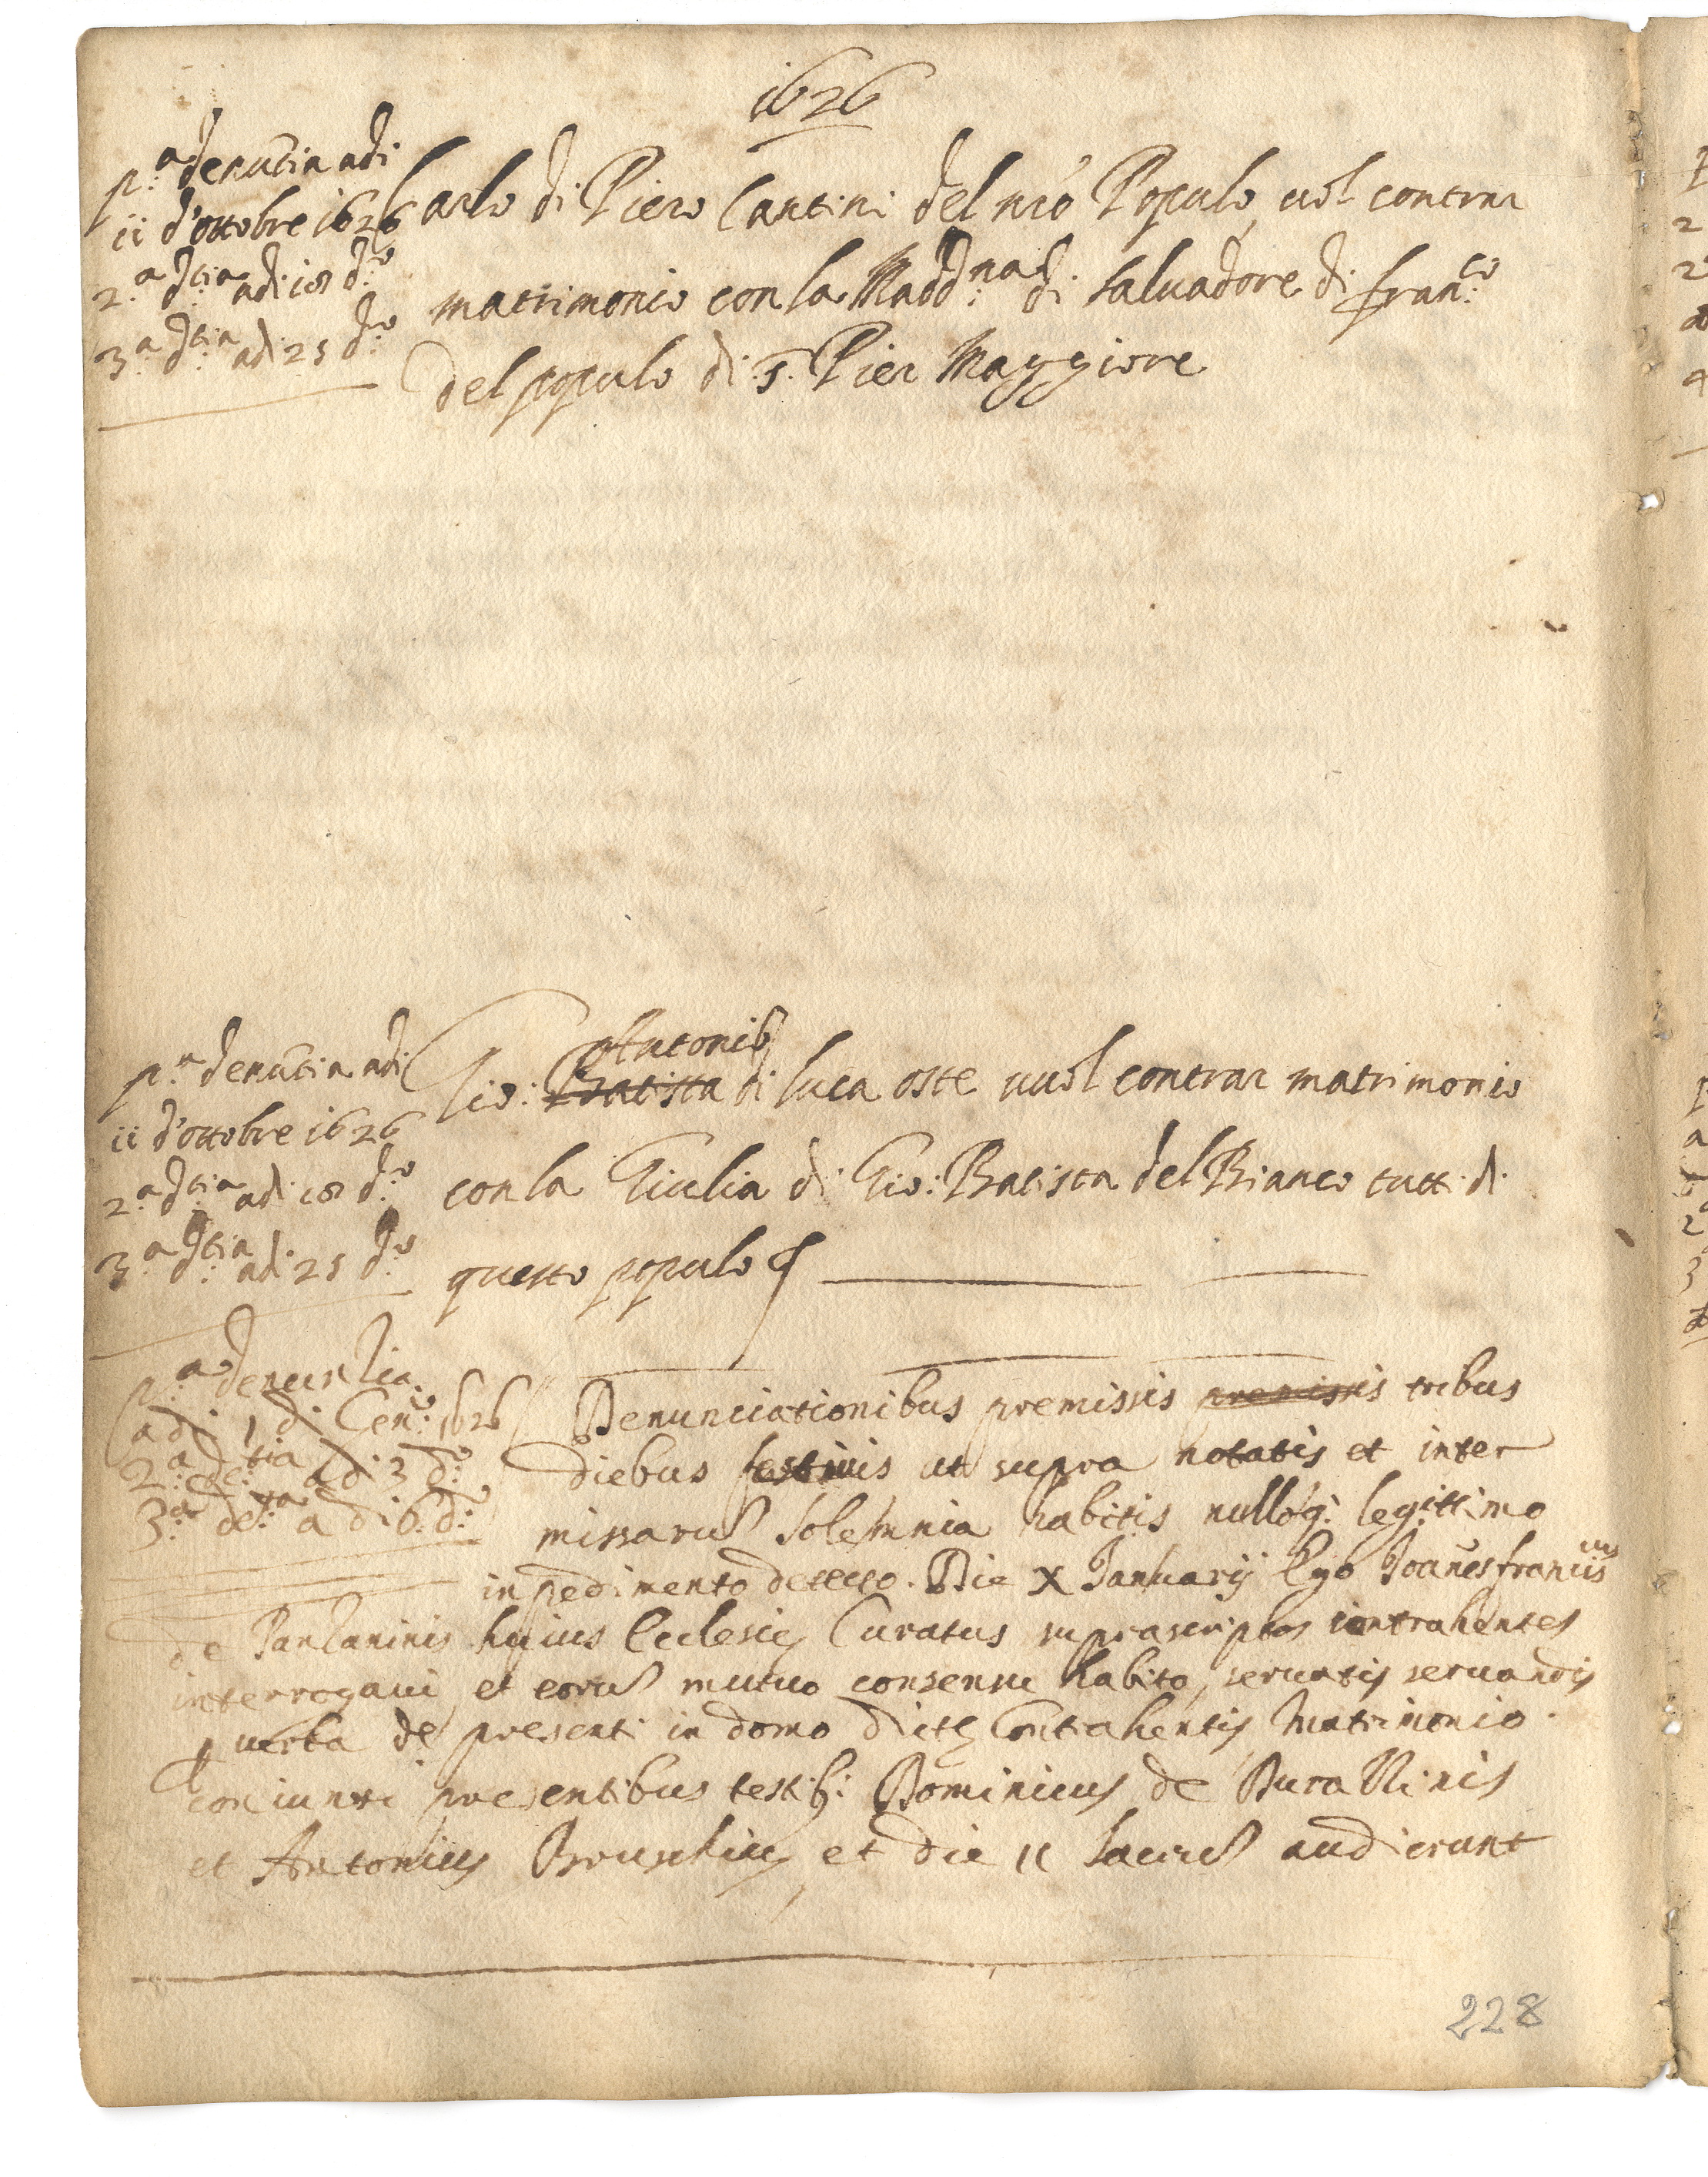 1626
p.a denũtia adi
ii d'ottobre 1626
2.a d.tia adi 18 d.o
3.a d.tia adi 25 d.o
Carlo di Piero Cantini del nr̃o Populo vol contrar
matrimonio con la Madd.na di Salvadore di fran.co
del populo di S. Pier Maggiore
p.a denũtia adi
ii d'ottobre 1626
2.a d.tia adi 18 d.o
3.a d.tia adi 25 d.o
Antonio
Gio: Batista di luca oste vuol contrar matrimonio
con la Giulia di Gio: Batista del Bianco tutti di
questo populo
p.a denunzia
adi 1 di Gen.o 1626
2.a de.tia adi 3 d.o
3.a de.ta a di 6 d.o
Denunciationibus premissis premissis tribus
diebus festiuis ut supra notatis et inter
missarũ Solemnia habitis nulloq: legittimo
inpedimento detecto. Die X Januarij Ego Joañesfranciscus
de Panzaninis hujus Ecclesię Curatus suprascriptos contrahentes
interrogaui et eorũ mutuo consensu habito, seruatis seruandis
p verba de presenti in domo dictę Contrahentis Matrimonio
coniunxi presentibus testib: Dominicus de Burallinis
et Antonius Bruschius et die 11 Sacrũ audierunt
228